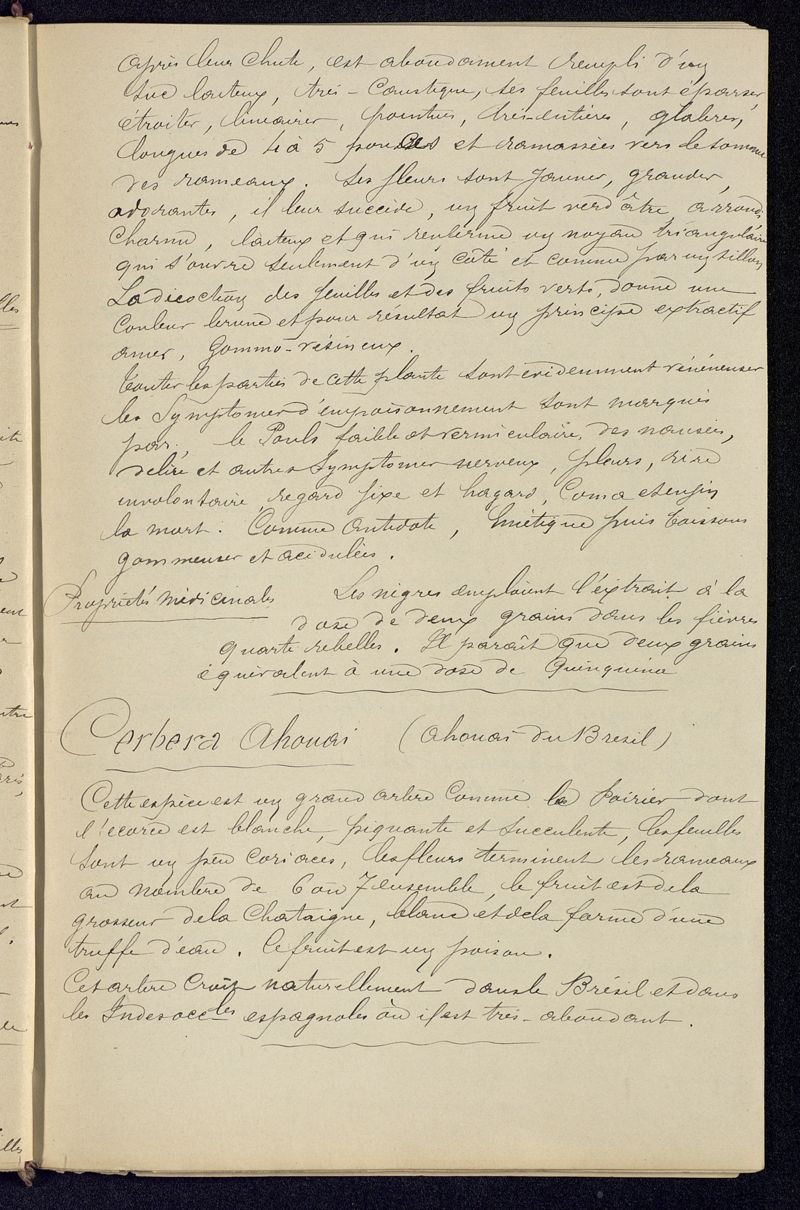 après leur chute, est abondament rempli d'un
suc laiteux, très-caustique, ses feuilles sont éparses,
étroites, linéaires, pointues, très-entières, glabres,
longues de 4 à 5 pouces et ramassées vers le sommet
des rameaux. Ses fleurs sont jaunes, grandes,
odorantes, il leur succède, un fruit verdâtre, arrondi
charnu, laiteux et qui renferme un noyau triangulaire
qui s'ouvre seulement d'un côté et comme par un sillon
La décoction des feuilles et des fruits verts, donne une
couleur brune et pour résultat un principe extractif
amer, gommo-résineux.
Toutes les parties de cette plante sont évidemment vénéneuses
les symptomes d'empoisonnement sont marqués
par: le Pouls faible et vermiculaire, des nausées,
délire et autres symptomes nerveux, pleurs, rire
involontaire, regard fixe et hagard, Coma et enfin
la mort. Comme antidote, émétique puis boissons
gommeuses et acidulées.
Propriétés médicinales Les nègres emploient l'extrait à la
dose de deux grains dans les fièvres
quarte rebelles. Il paraît que deux grains
équivalent à une dose de Quinquina
Cerbera Ahouai (ahouai du Brésil)
Cette espèce est un grand arbre comme le Poirier dont
l'écorce est blanche, piquante et succulente, les feuilles
sont un peu coriaces, les fleurs terminent les rameaux
au nombre de 6 ou 7 ensemble, le fruit est de la
grosseur de la chataigne, blanc et de la forme d'une
truffe d'eau. Ce fruit est un poison.
Cet arbre croit naturellement dans le Brésil et dans
les Indes occles espagnoles où il est très-abondant.